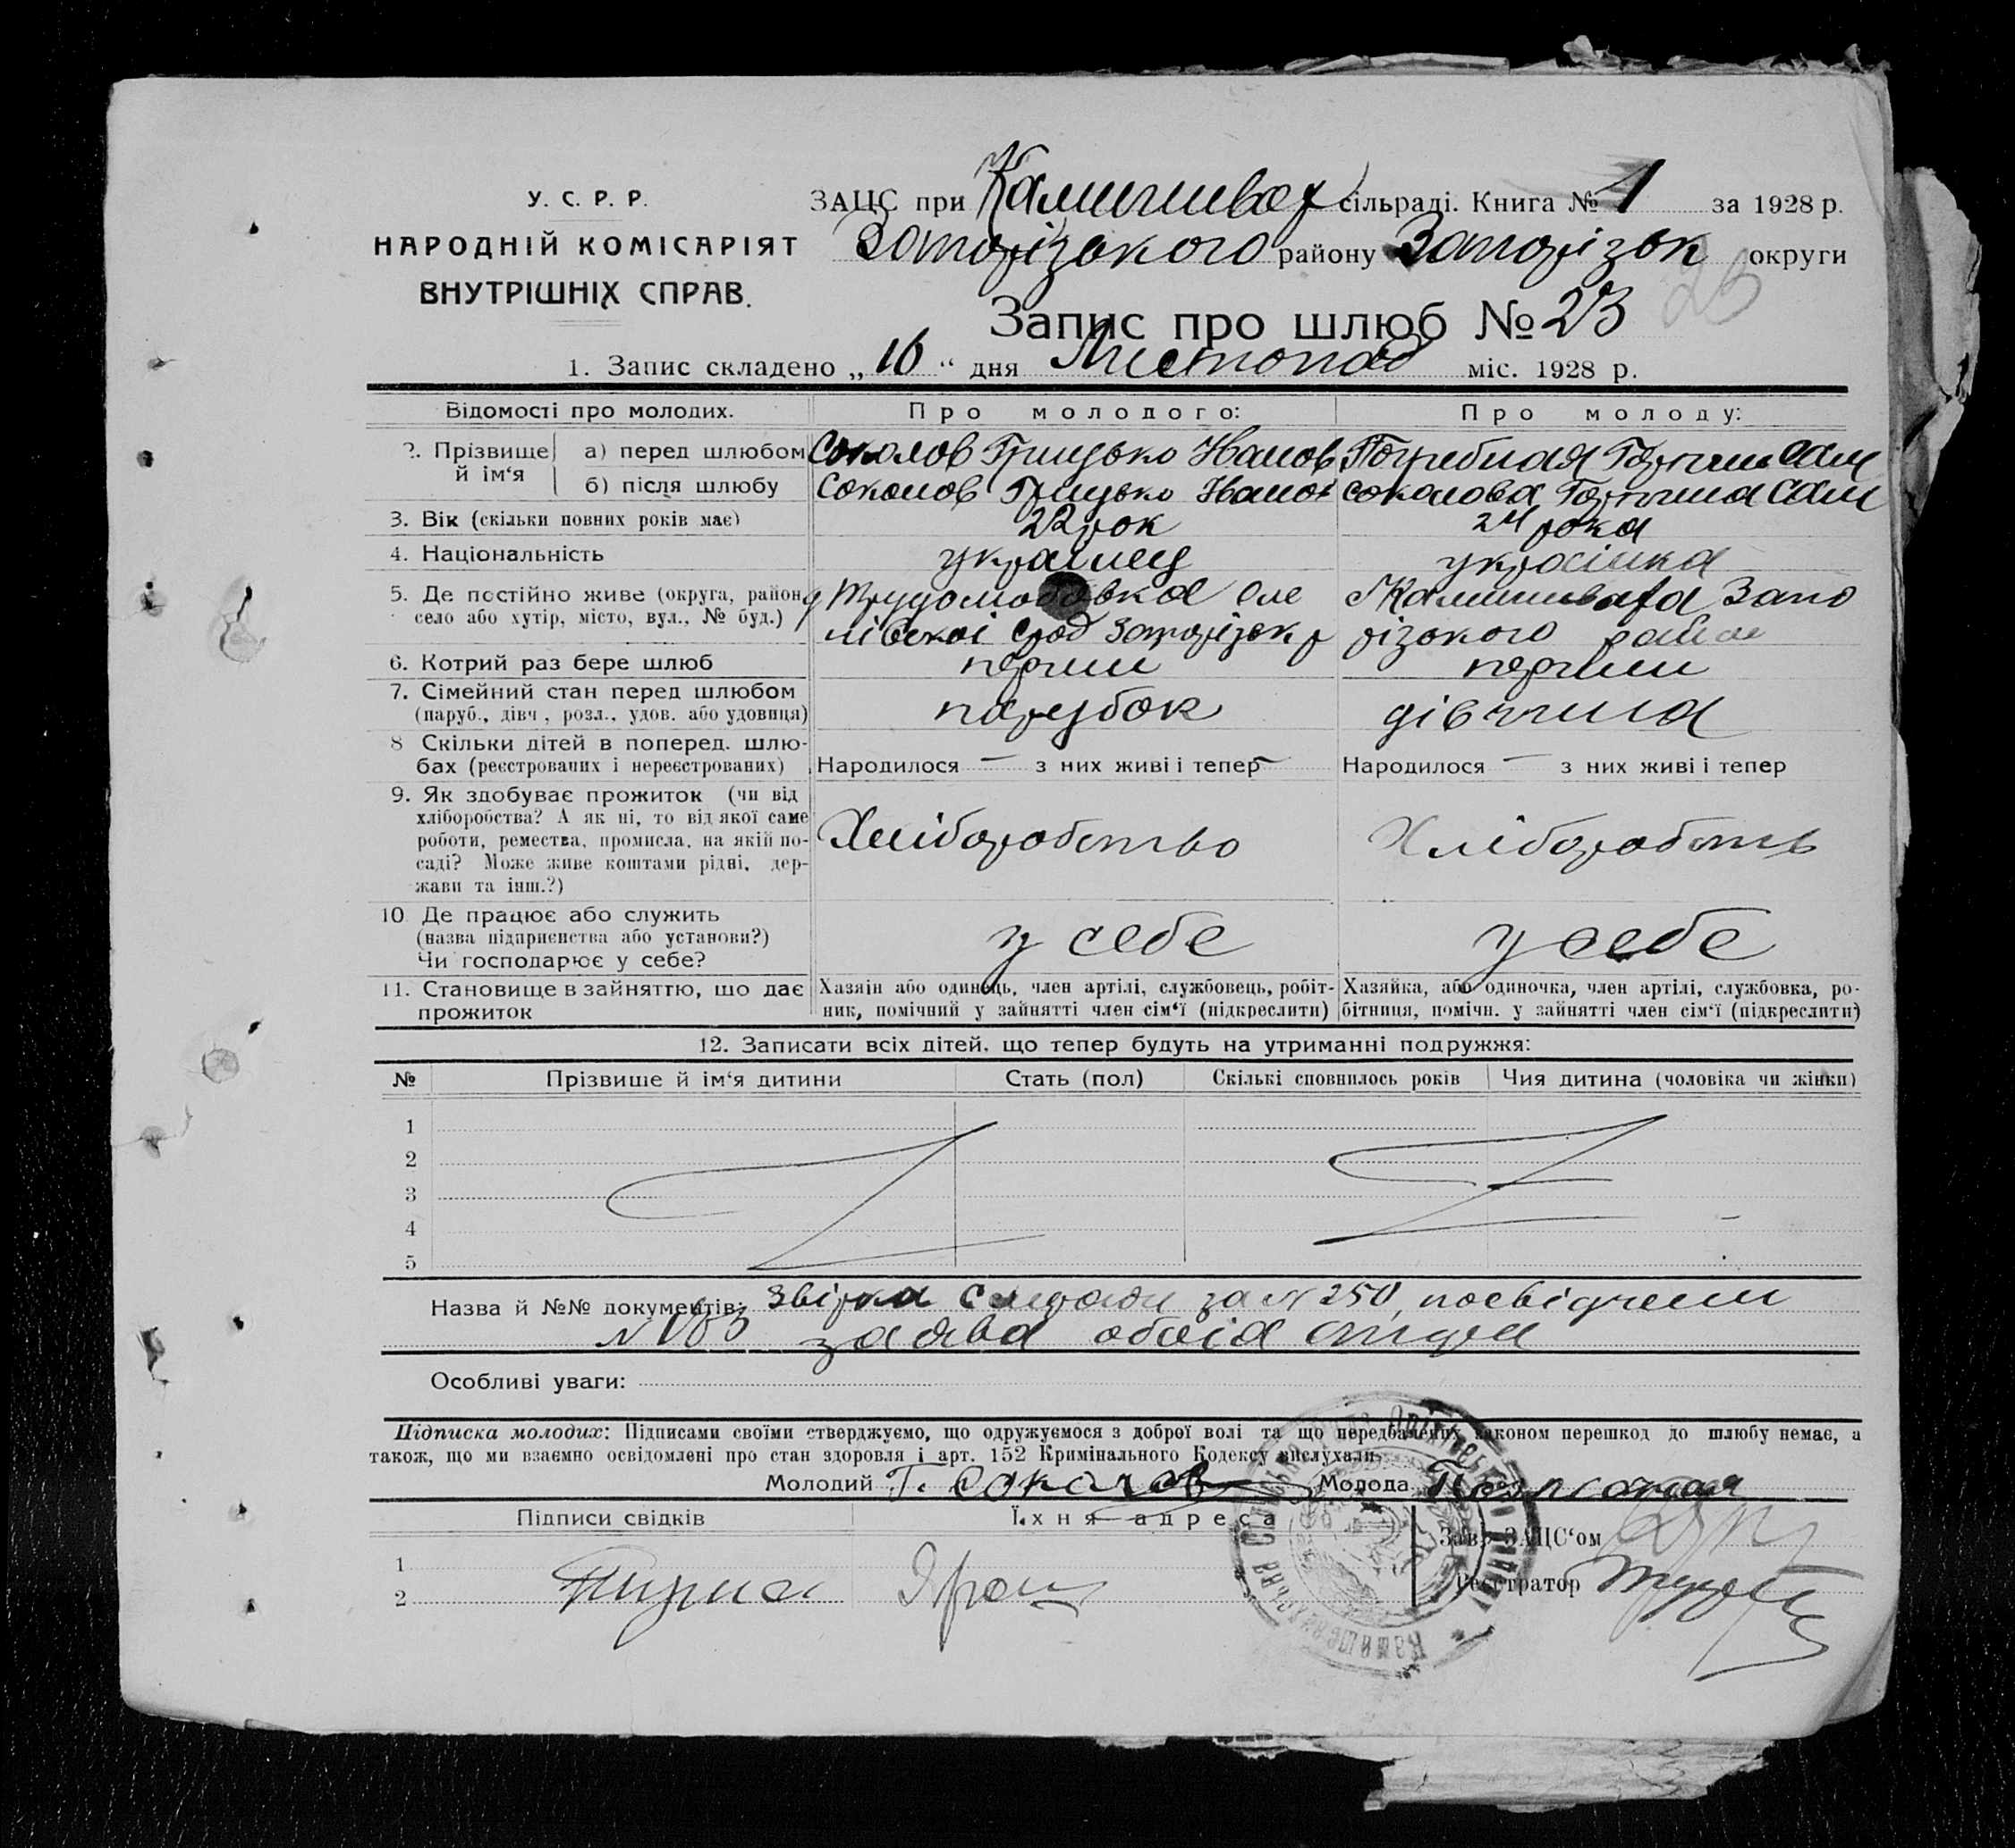 У. С. Р. Р.
НАРОДНІЙ КОМІСАРІЯТ
ВНУТРІШНІХ СПРАВ.
ЗАЦС при Камишевах сільраді. Книга № 1 за 1928 р.
Запорізького району Запорізьк округи
Запис про шлюб № 23
23
1. Запис складено „16“ дня Листопад міс. 1928 р.
Відомості про молодих. Про молодого: Про молоду:
2. Прізвище й ім‘я
а) перед шлюбом Соколов Грицько Иванов Погребная Горпина Сам
б) після шлюбу Соколов Грицько Иванов Соколова Горпина Сам
3. Вік (скільки повних років має) 22 рок 24 рока
4. Національність українец українка
5. Де постійно живе (округа, район, село або хутір, місто, вул., № буд.)
Запорізьк р
Камишеваха Запо
різького район
6. Котрий раз бере шлюб перши перши
7. Сімейний стан перед шлюбом парубок дівчина
(паруб., дівч., розл., удов. або удовиця)
8 Скільки дітей в поперед. шлю-
бах (реєстрованих і нереєстрованих) Народилося — з них живі і тепер — Народилося — з них живі і тепер
9. Як здобуває прожиток (чи від
хліборобства? А як ні, то від якої саме
роботи, ремества, промисла, на якій по-
саді? Може живе коштами рідні, дер-
жави та інш.?)
Хліборобство Хлібороботь
10 Де працює або служить
(назва підприєнства або установи?)
Чи господарює у себе?
у себе у себе
11. Становище в зайняттю, що дає
прожиток
Хазяін або одинець, член артілі, службовець, робіт-
ник, помічний у зайнятті член сім‘ї (підкреслити)
Хазяйка, або одиночка, член артілі, службовка, ро-
бітниця, помічн. у зайнятті член сім‘ї (підкреслити)
12. Записати всіх дітей, що тепер будуть на утриманні подружжя:
№ Прізвище й ім‘я дитини Стать (пол) Скількі сповнилось років Чия дитина (чоловіка чи жінки)
1
2
3
4
5
Назва й №№ документів: за N 250, посвідчени
N 183 заява
Особливі уваги:
Підписка молодих: Підписами своїми стверджуємо, що одружуємося з доброї волі та що передбачених законом перешкод до шлюбу немає, а
також, що ми взаємно освідомлені про стан здоровля і арт. 152 Кримінального Кодексу вислухали.
Молодий Г. Соколов Молода
Підписи свідків Їхня адреса
Зав. ЗАЦС‘ом
1
2
Реєстратор